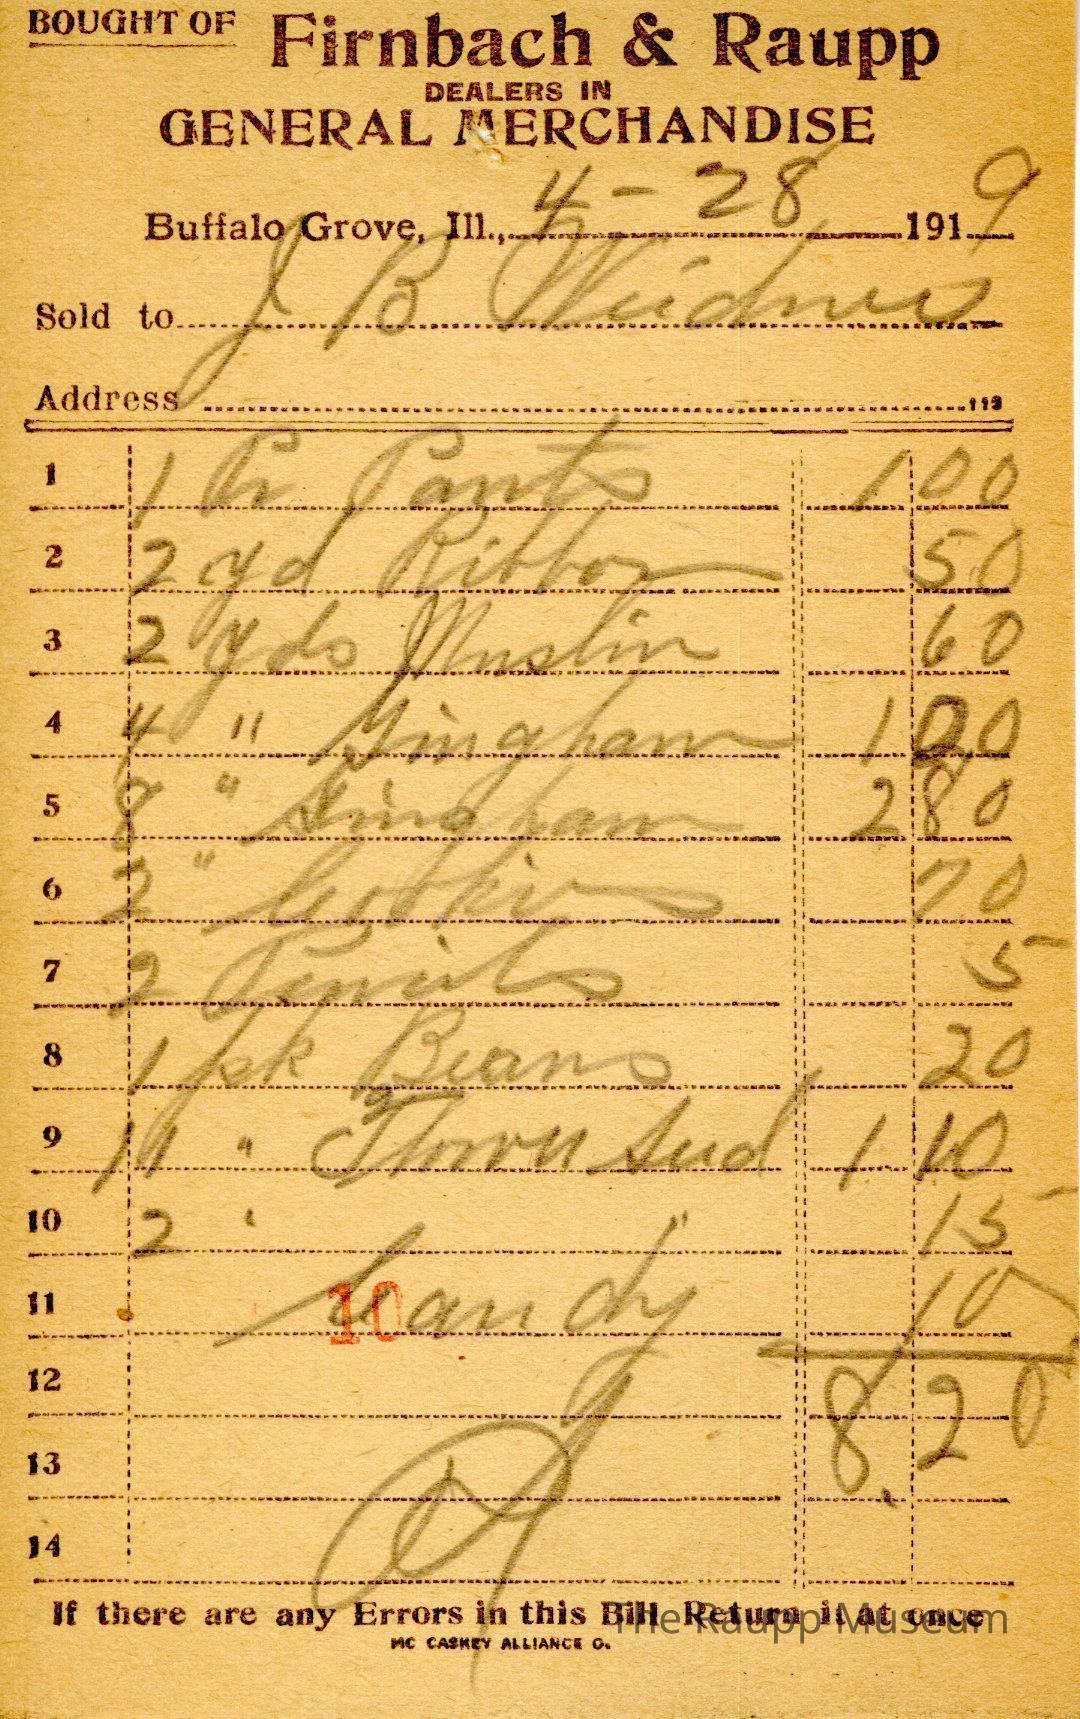 BOUGHT OF Firnbach & Raupp
DEALERS IN
GENERAL MERCHANDISE
Buffalo Grove, Ill., 4-28 1919
Sold to J B Weidner
Address 113
1 1 Pr Pants 1 00
2 2 yd Ribbon 50
3 2 yds Muslin 60
4 4 " Gingham 1 00
5 8 " Gingham 2 80
6 2 " Cookies 70
7 2 Pencils 5
8 1 pk Beans 20
9 11 " Flower Seed 1 10
10 2 " " 15
11 Candy 10
10
12 8.20
13
14
If there are any Errors in this Bill Return it at once
MC CASKEY ALLIANCE O.
The Raupp Museum